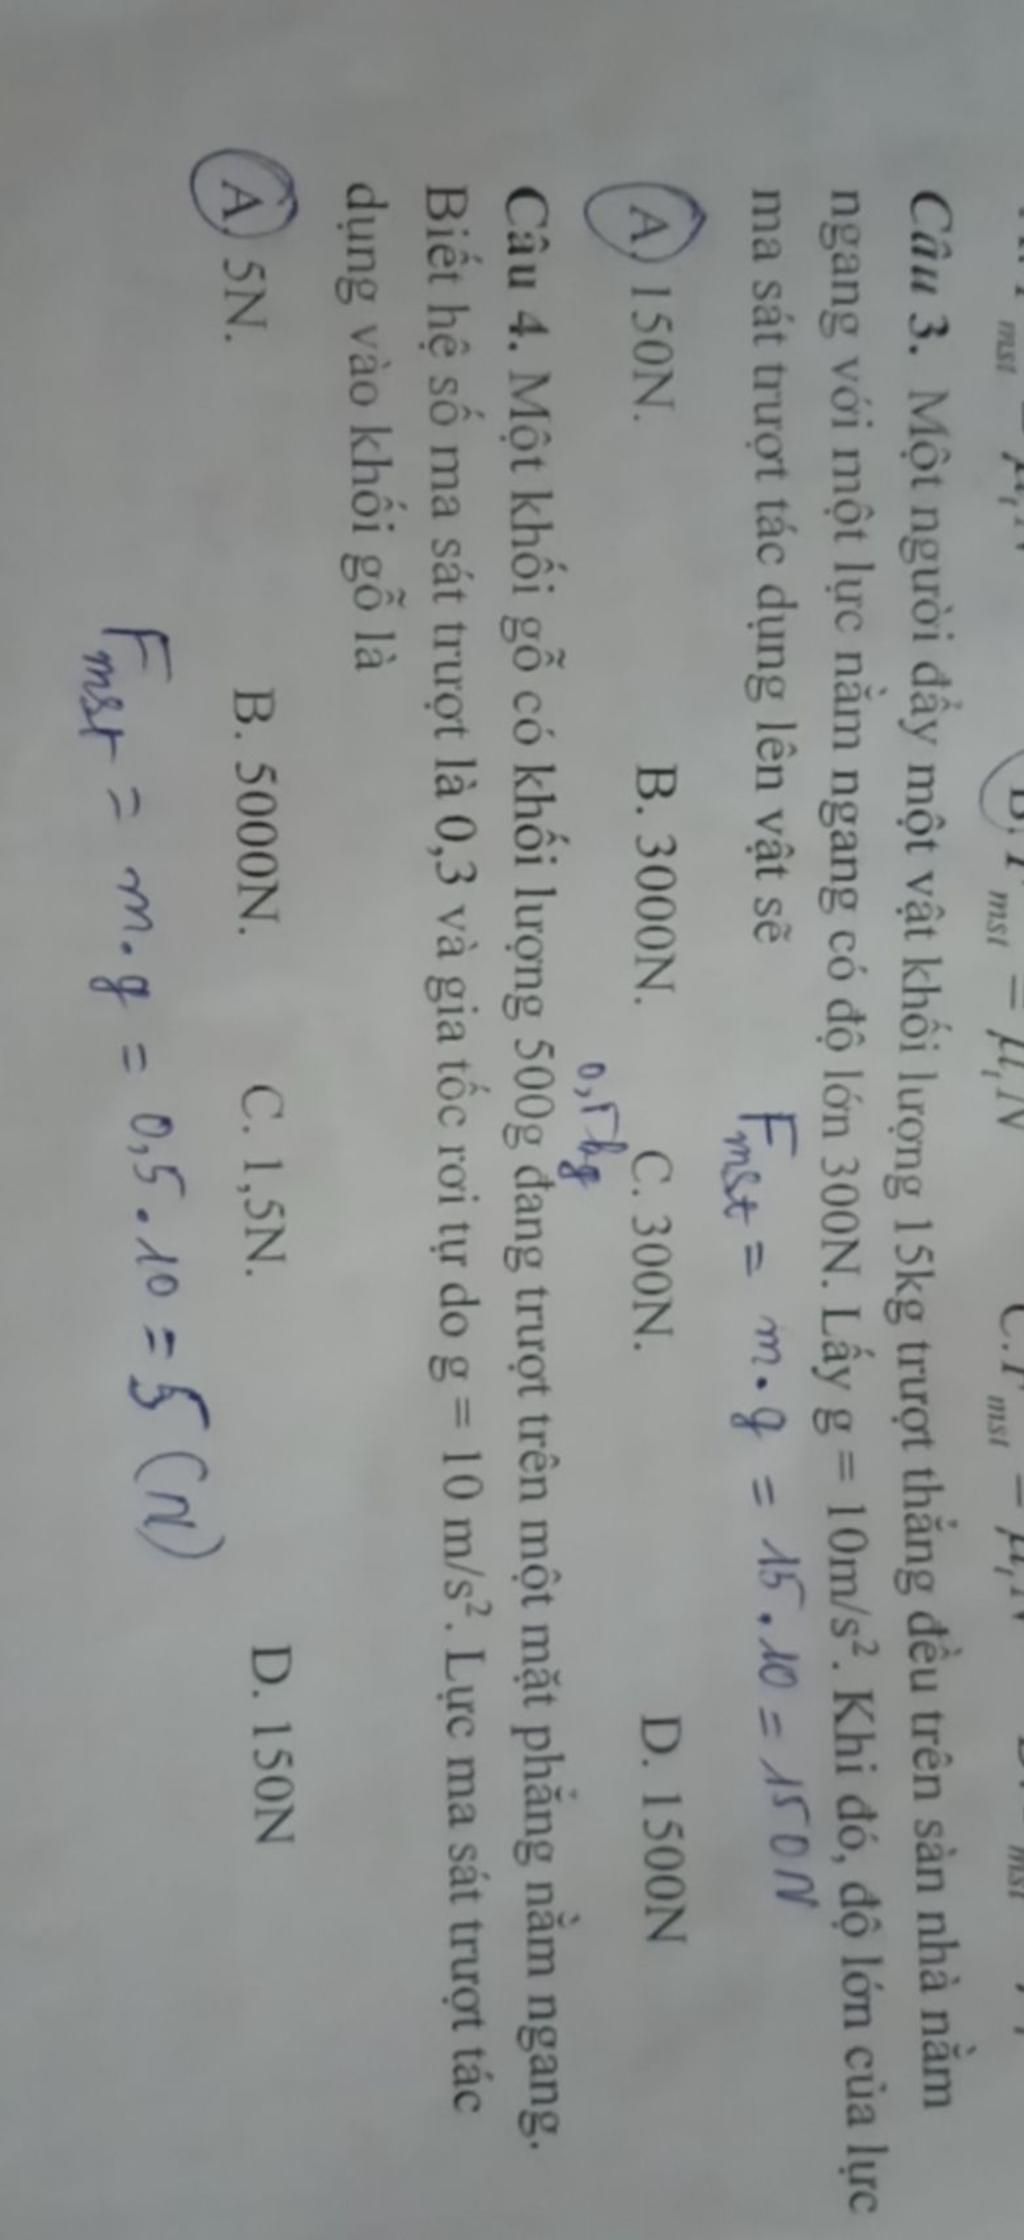 B. F mst = μt N
Câu 3. Một người đẩy một vật khối lượng 15kg trượt thẳng đều trên sàn nhà nằm
ngang với một lực nằm ngang có độ lớn 300N. Lấy g = 10m/s². Khi đó, độ lớn của lực
ma sát trượt tác dụng lên vật sẽ Fmst = m.g = 15.10 = 150N
A. 150N. B. 3000N. C. 300N. D. 1500N
0,5kg
Câu 4. Một khối gỗ có khối lượng 500g đang trượt trên một mặt phẳng nằm ngang.
Biết hệ số ma sát trượt là 0,3 và gia tốc rơi tự do g = 10 m/s². Lực ma sát trượt tác
dụng vào khối gỗ là
A. 5N. B. 5000N. C. 1,5N. D. 150N
Fmst = m.g = 0,5.10 = 5 (N)